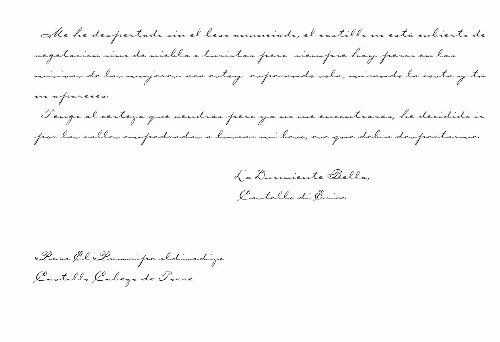 Me he despertado sin el beso anunciado, el castillo no está cubierto de
vegetación sino de niebla o turistas pero siempre hay
de las mujeres esperando sola, mirando la costa y tú
no apareces.
Tengo la certeza que vendrás pero ya no me encontrarás, he decidido ir
por las calles empedradas a buscar mi beso, que debía despertarme.
La Durmiente Bella,
Castello di Erice
Para El Príncipe
Castillo Cabeza de Torre